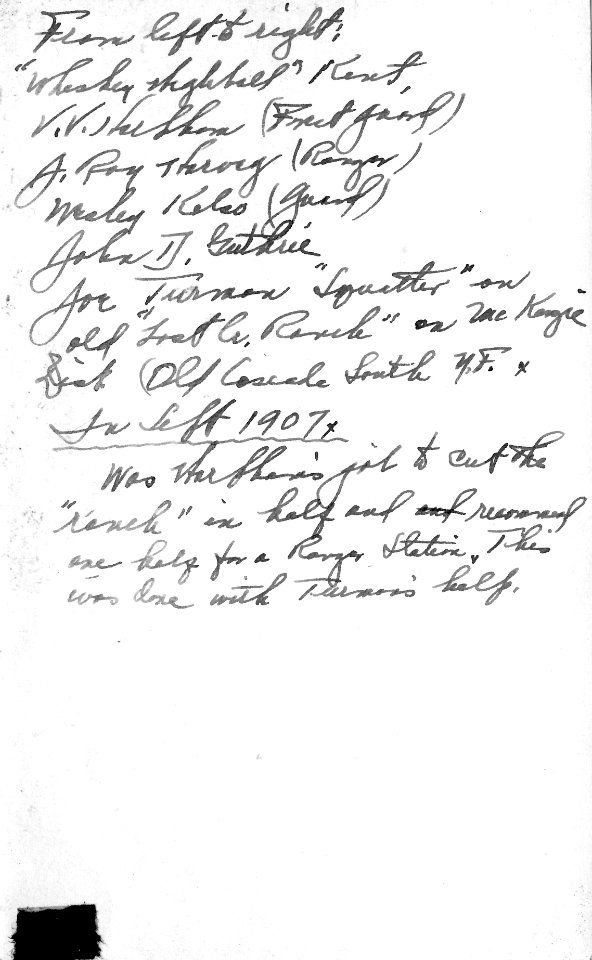 From left to right:
"Whiskey Highball" Kent,
V.V. Harpham (Forest guard)
J. Roy Harvey (Ranger)
Wesley Kelso (guard)
John D. Guthrie
Joe Turman "Squatter" on
old "Lost Cr. Ranch" on McKenzie
Dist (Old Cascade South N.F. x
In Sept 1907x
Was Harpham's job to cut the
"ranch" in half and and recommend
one half for a Ranger Station. This
was done with Turman's half.